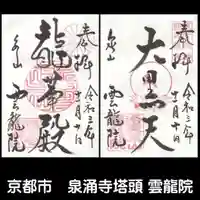 奉拝
大黒天
泉山
雲龍院
令和三年
十一月十日
奉拝
龍華殿
泉山
雲龍院
令和三年
十一月十日
京都市 泉涌寺塔頭 雲龍院